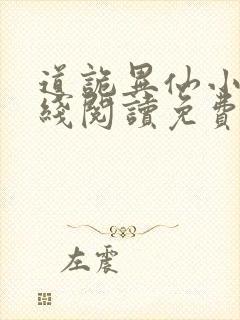 道詭異仙小
綫閱讀免費
左震